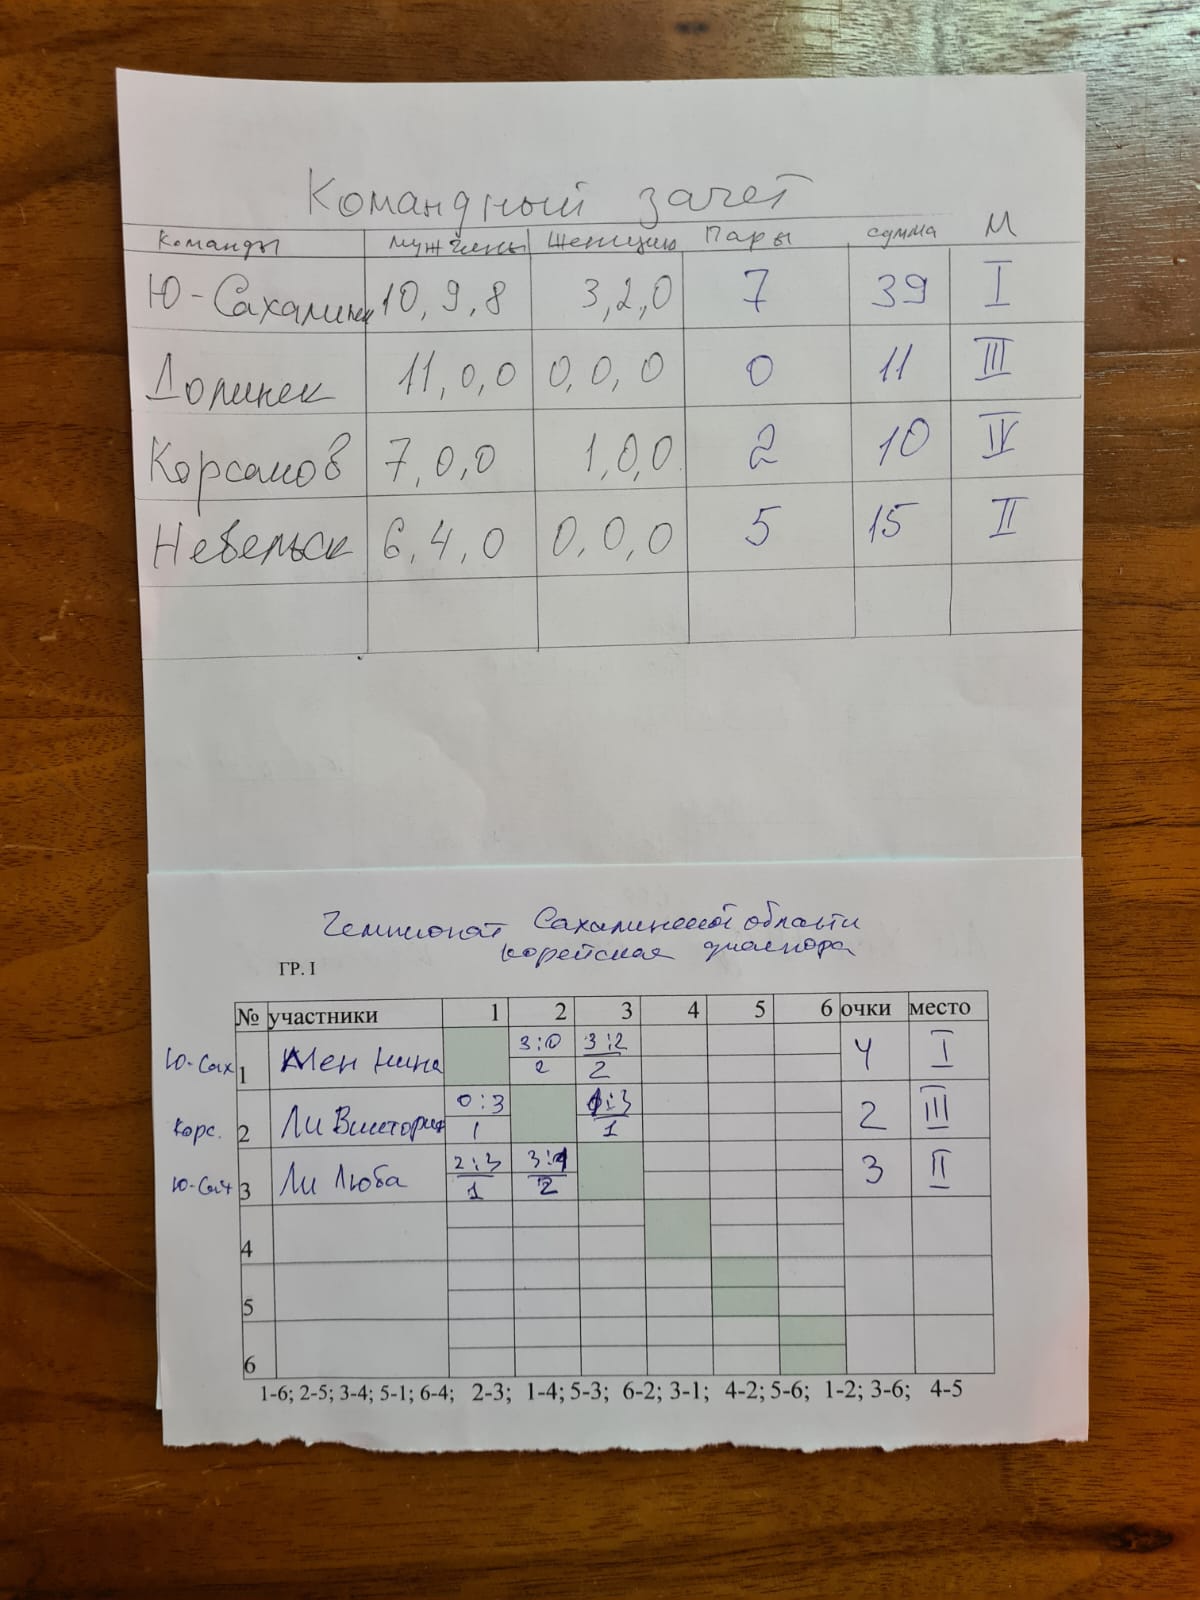 Командный зачет
Команды Мужчины Женщины Пары сумма М
Ю-Сахалинск 10, 9, 8 3, 2, 0 7 39 I
Долинск 11, 0, 0 0, 0, 0 0 11 III
Корсаков 7, 0, 0 1, 0, 0 2 10 IV
Невельск 6, 4, 0 0, 0, 0 5 15 II
Чемпионат Сахалинской области
корейская диаспора
ГР. I
№ участники 1 2 3 4 5 6 очки место
Ю-Сах 1 Мен Нина 3:0 3:2 4 I
2 2
Корс. 2 Ли Виктория 0:3 1:3 2 III
1 1
Ю-Сах 3 Ли Люба 2:3 3:1 3 II
1 2
4
5
6
1-6; 2-5; 3-4; 5-1; 6-4; 2-3; 1-4; 5-3; 6-2; 3-1; 4-2; 5-6; 1-2; 3-6; 4-5